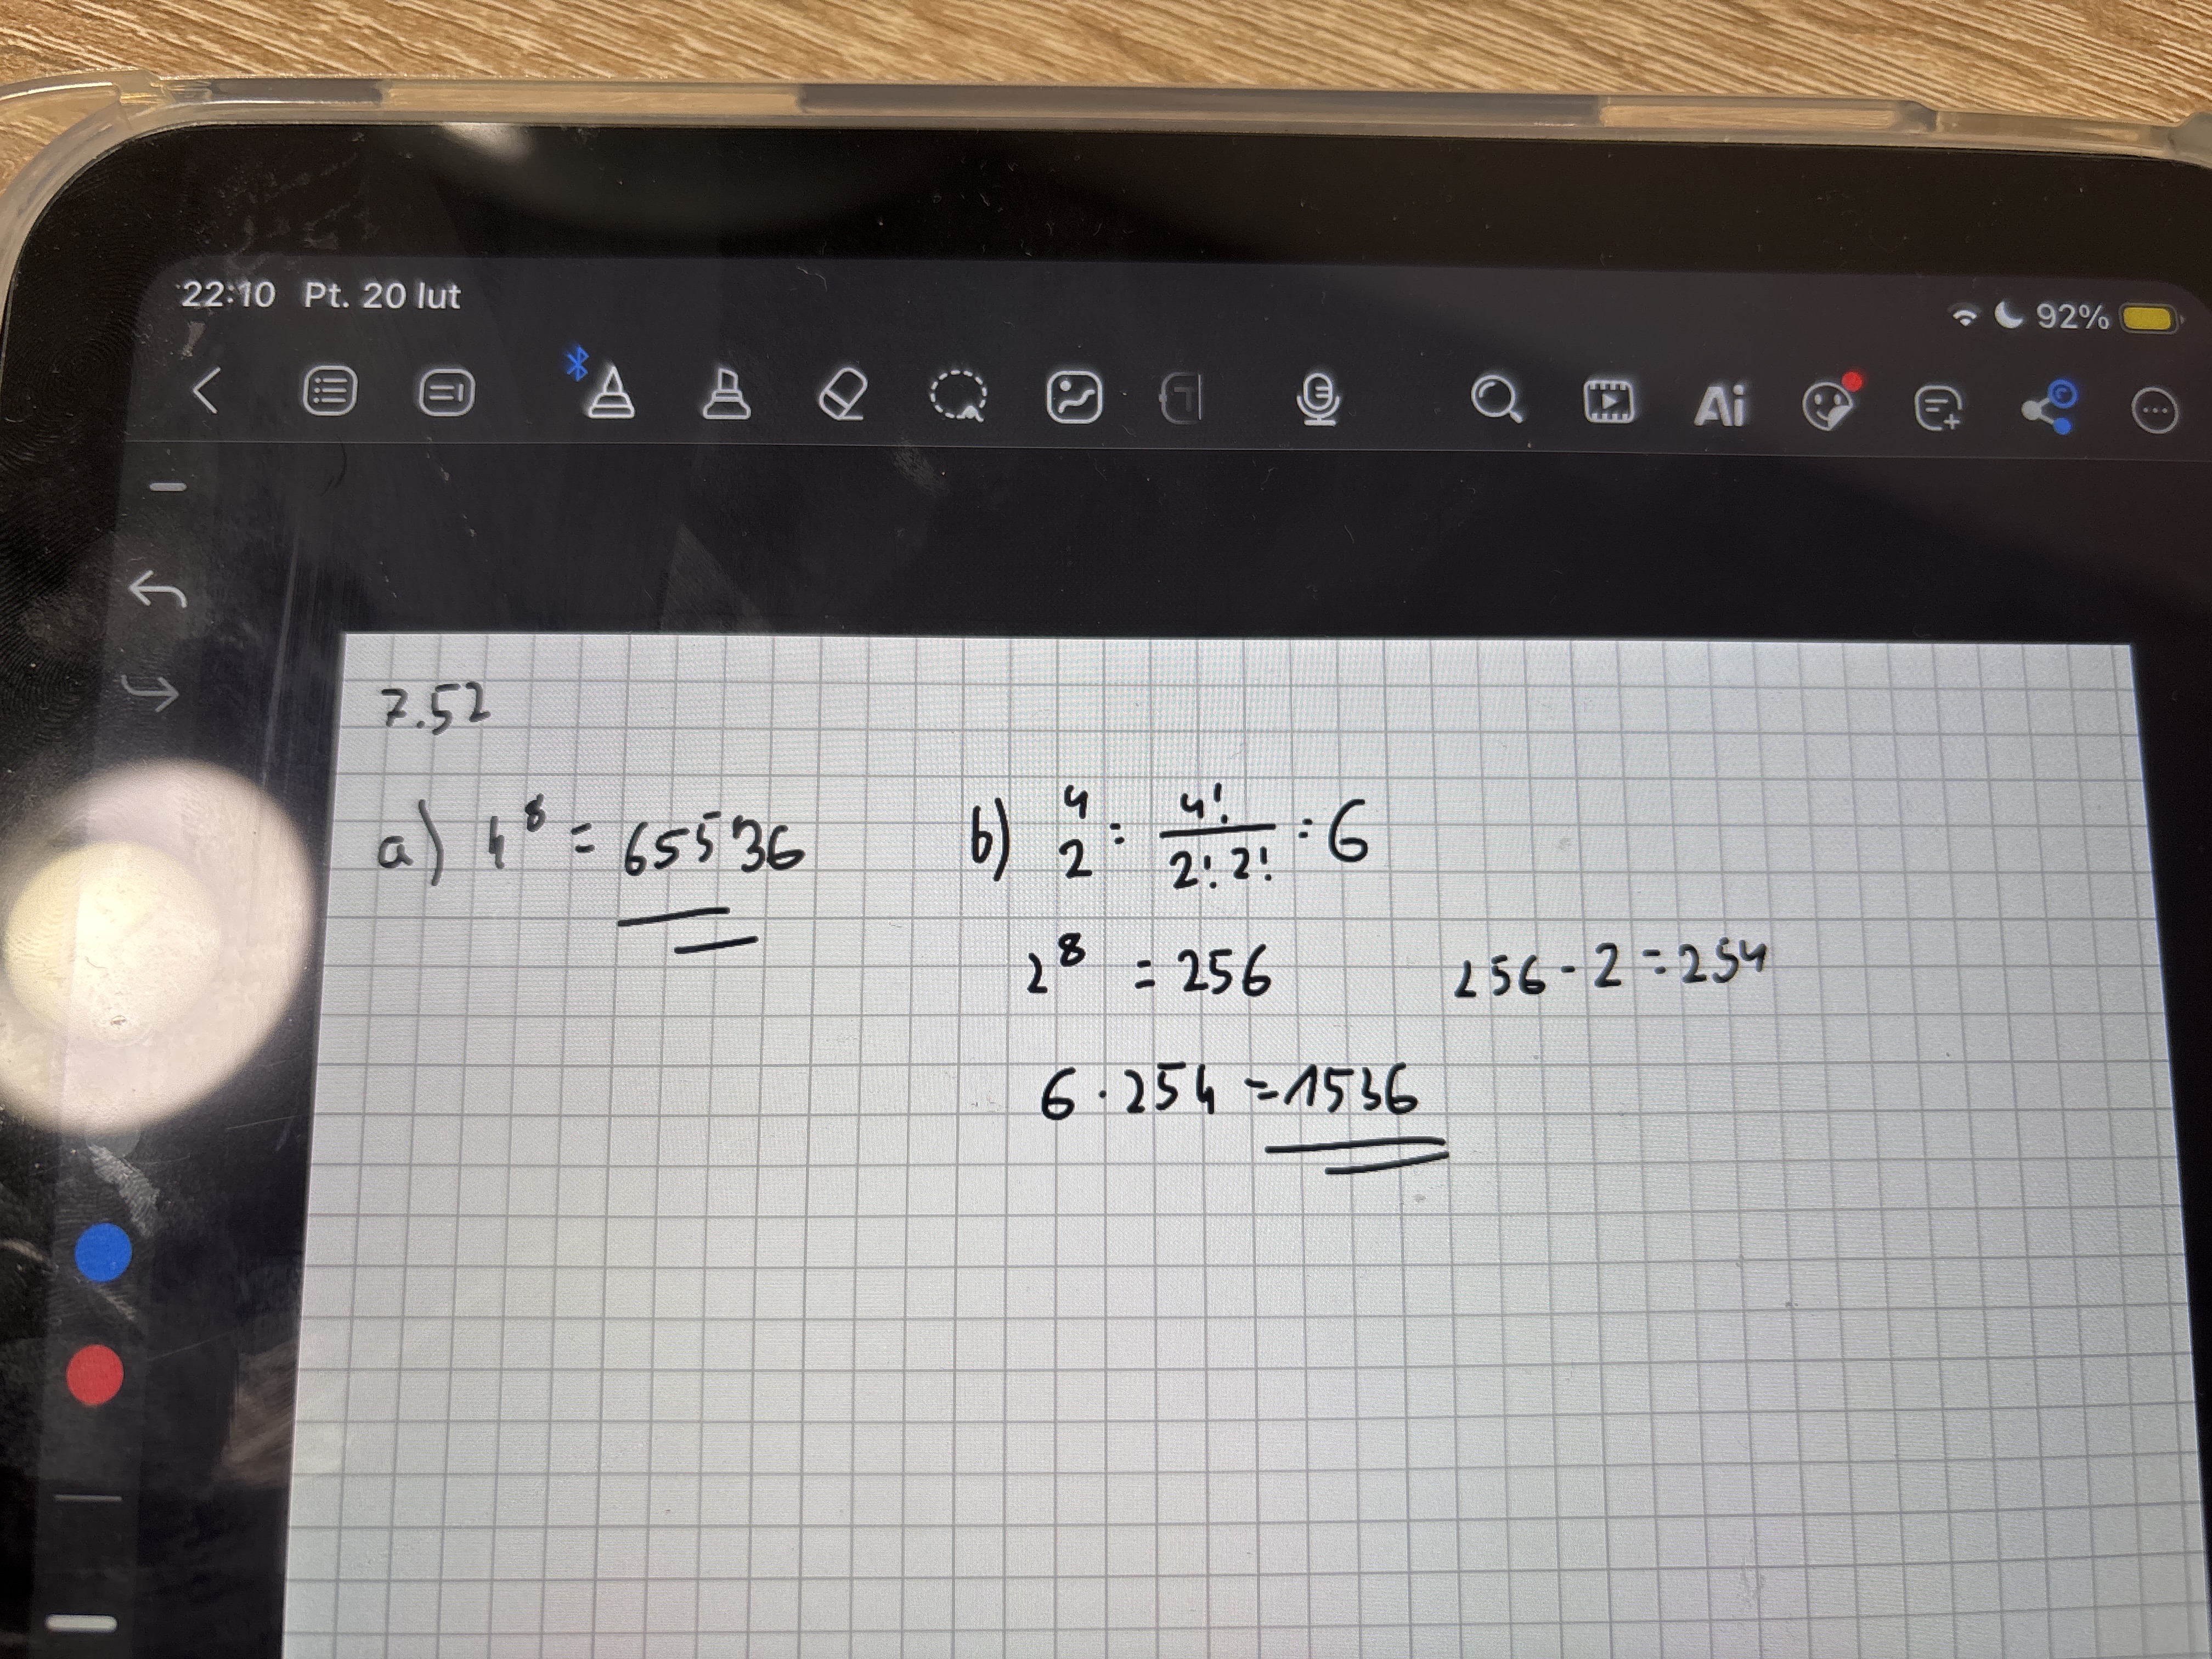 22:10 Pt. 20 lut 92%
Ai
7.52
a) 4^8 = 65536
b) 4 2 = 4! / 2! 2! = 6
2^8 = 256 256 - 2 = 254
6 · 254 = 1536